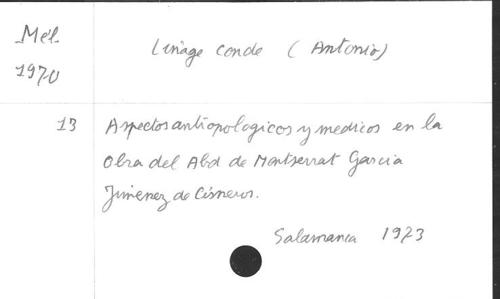 Mél
1970
Linage Conde (Antonio)
13
Aspectos antropologicos y medicos en la
Obra del Abd de Montserrat Garcia
Jiménez de Cisneros.
Salamanca 1973